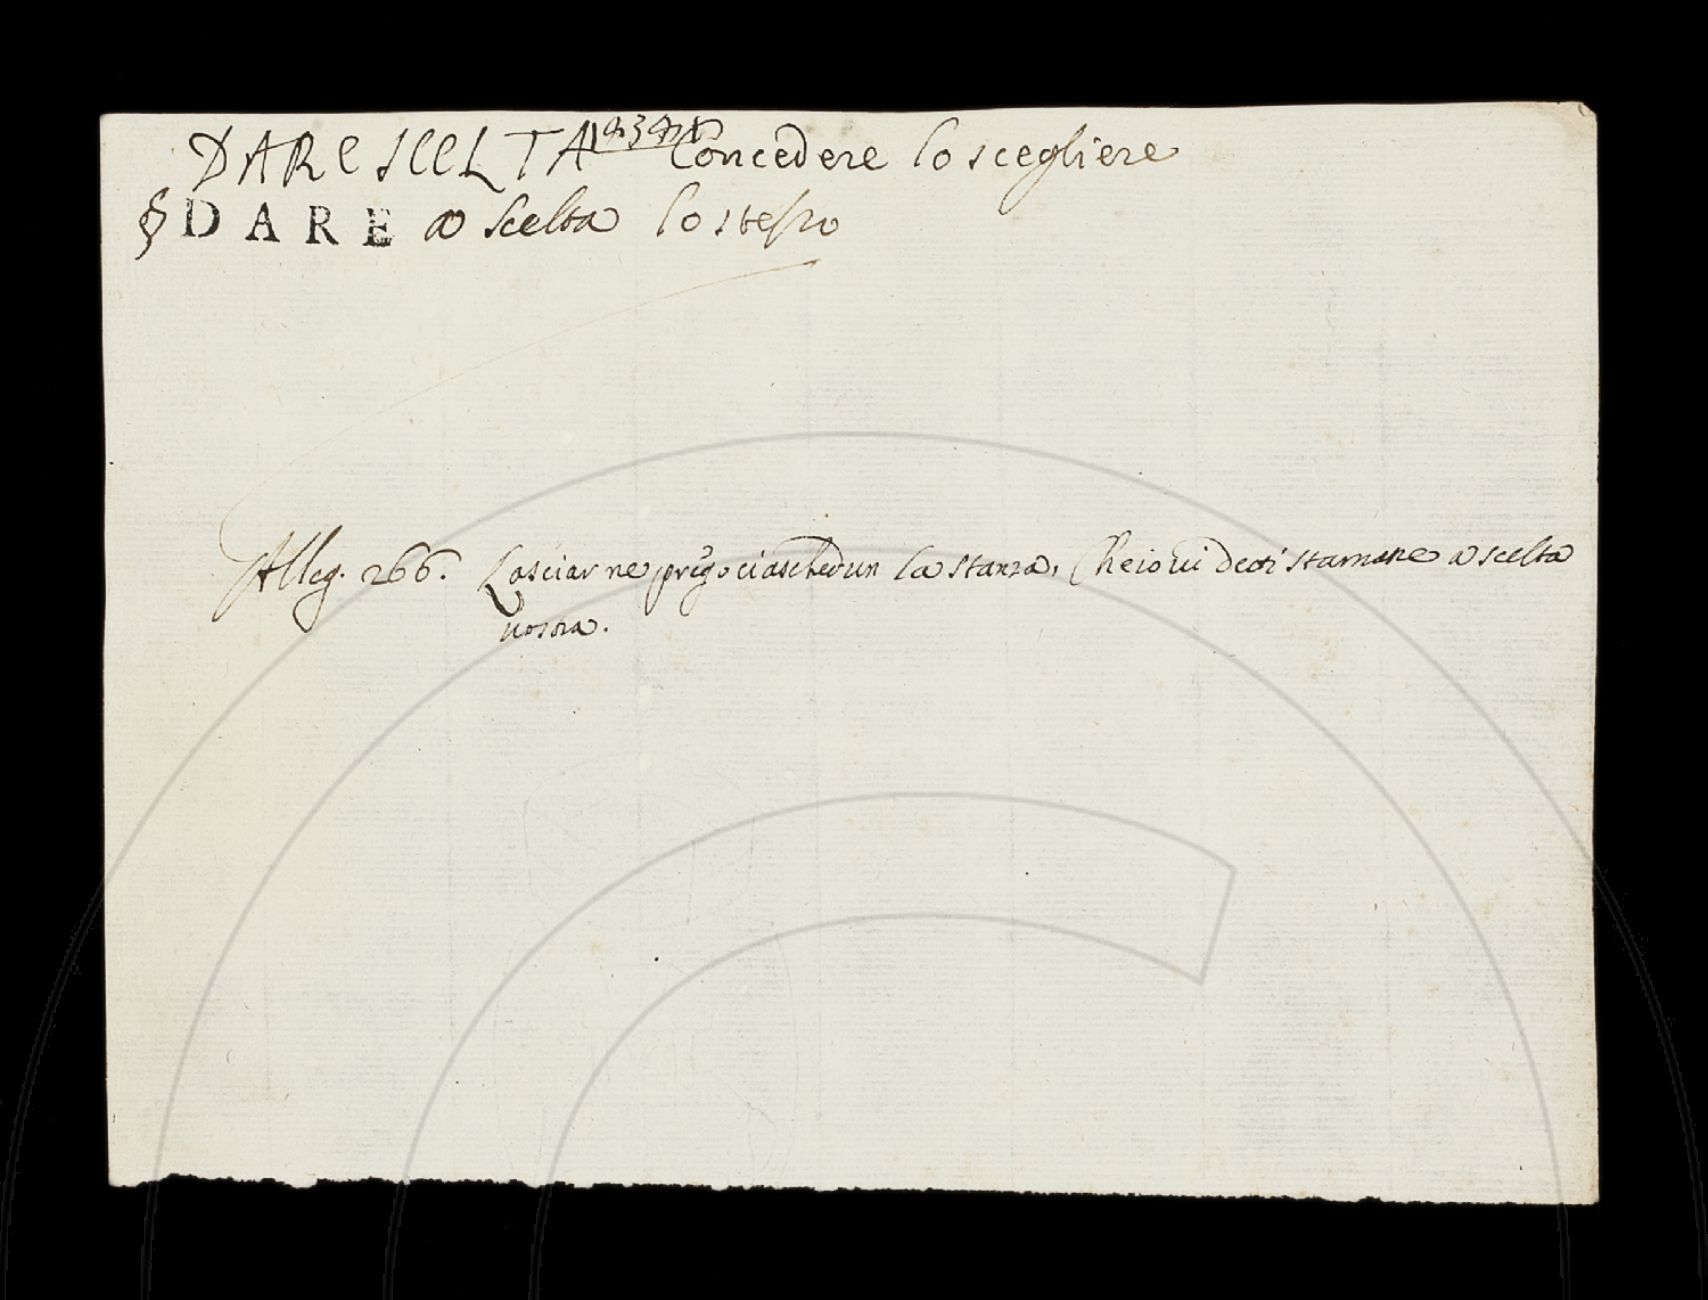 DARE SCELTA Concedere lo scegliere
§ DARE a scelta lo stesso
Alleg. 266. Lasciarne prego ciaschedun la stanza, Che io vi deti stamane a scelta
vostra.